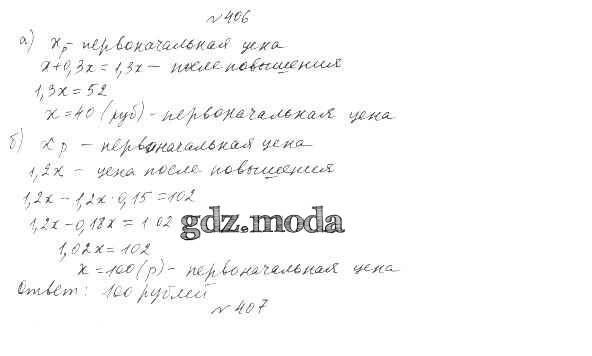 №406
а) x р - первоначальная цена
x+0,3x = 1,3x - после повышения
1,3x = 52
x = 40 (руб) - первоначальная цена
б) x р - первоначальная цена
1,2x - цена после повышения
1,2x - 1,2x·0,15 = 102
1,2x - 0,18x = 102
gdz.moda
1,02x = 102
x = 100 (р) - первоначальная цена
Ответ: 100 рублей
№407